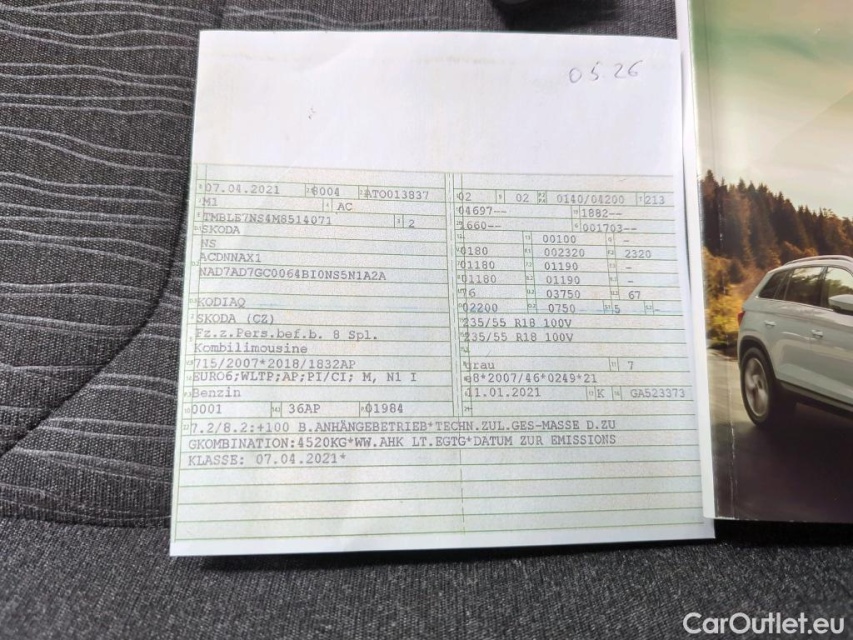 05 26
07.04.2021 8004 ATO013837 02 02 0140/04200 213
M1 AC 04697-- 1882--
TMBLE7NS4MS514071 2 1660-- 001703--
SKODA 00100 -
NS 0180 002320 2320
ACDNNAX1 01180 01190 -
NAD7AD7GC0064BI0NS5N1A2A 01180 01190 -
76 03750 67
KODIAQ 02200 0750 5 -
SKODA (CZ) 235/55 R18 100V
Fz.z.Pers.bef.b. 8 Spl. 235/55 R18 100V
Kombilimousine
715/2007*2018/1832AP grau 7
EURO6;WLTP;AP;PI/CI; M, N1 I e8*2007/46*0249*21
Benzin 11.01.2021 K GA523373
0001 36AP 01984
7.2/8.2:+100 B.ANHÄNGEBETRIEB*TECHN.ZUL.GES-MASSE D.ZU
GKOMBINATION:4520KG*WW.AHK LT.EGTG*DATUM ZUR EMISSIONS
KLASSE: 07.04.2021*
CarOutlet.eu